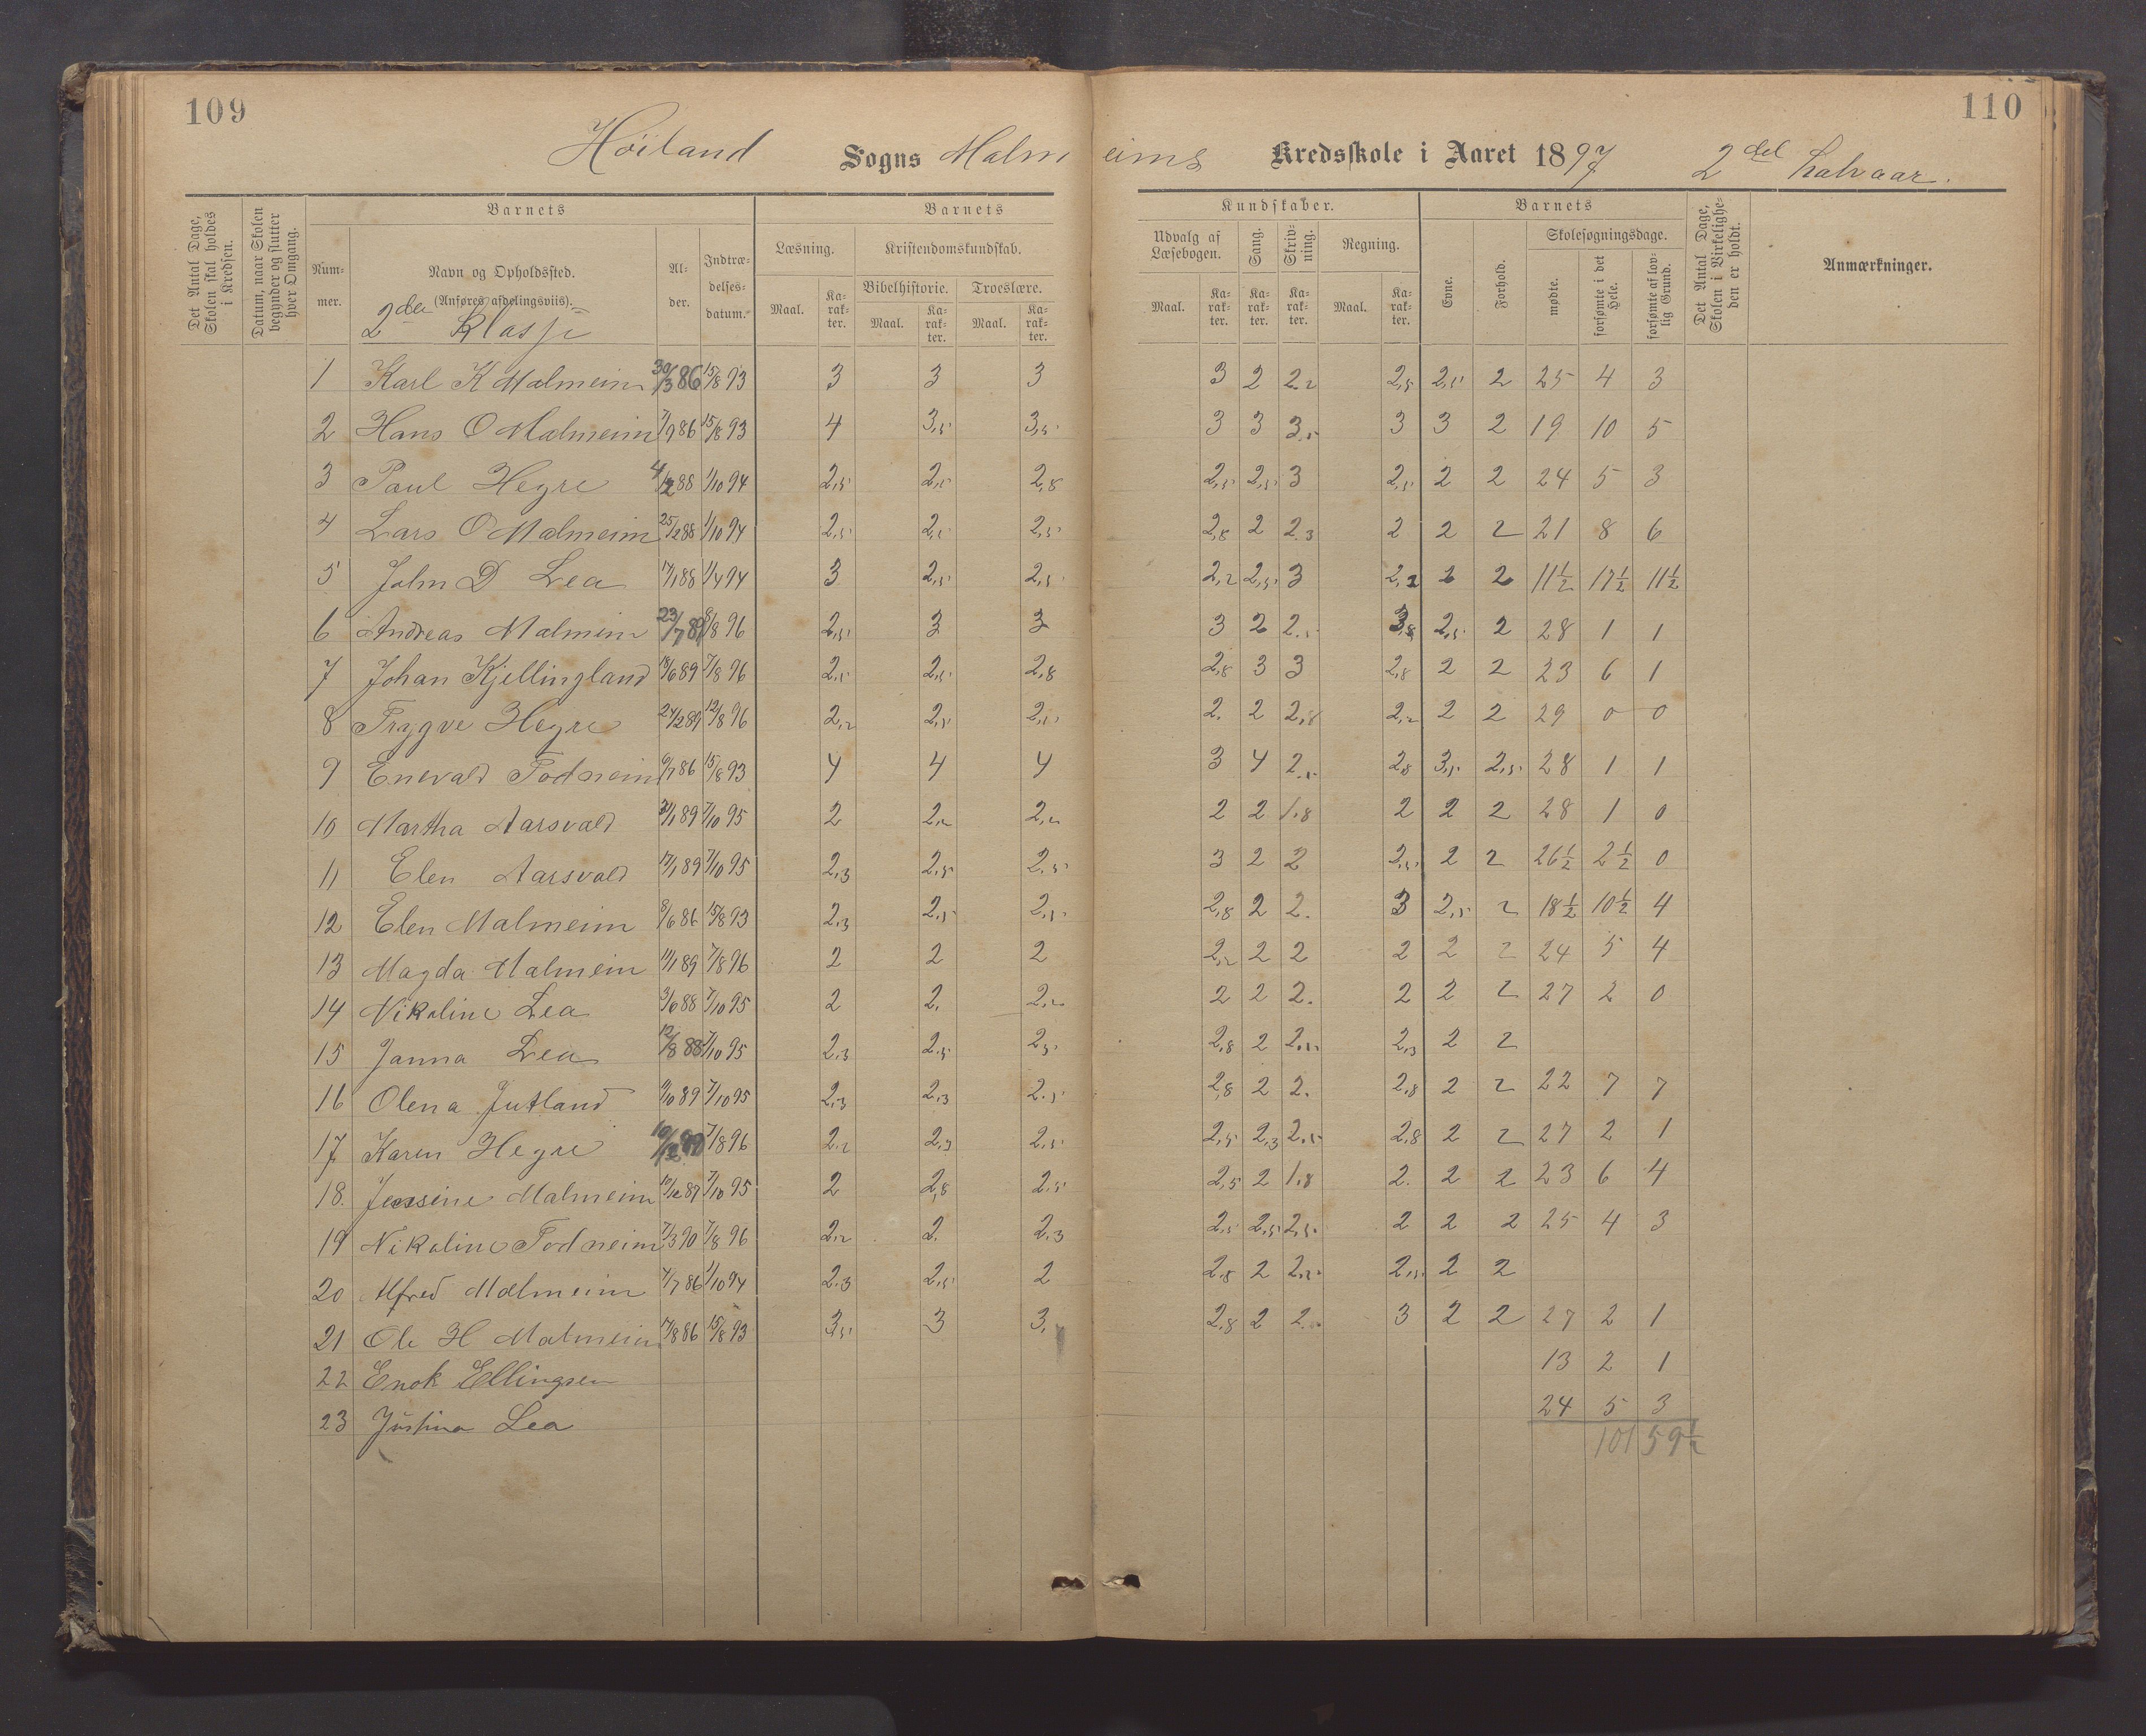 109
110
Höiland Sogns Malmeims Kredsskole i Aaret 1897 2del halvaar.
Det Antal Dage, Skolen skal holdes i Kredsen.
Datum, naar Skolen begynder og slutter hver Omgang.
Barnets
Barnets
Kundskaber.
Barnets
Det Antal Dage, Skolen i Virkelighe-den er holdt.
Anmærkninger.
Num-mer.
Navn og Opholdssted.
(Anføres afdelingsviis).
2den Klasse
Al-der.
Indtræ-delses-datum.
Læsning.
Kristendomskundskab.
Bibelhistorie.
Troeslære.
Udvalg af Læsebogen.
Sang.
Skriv-ning.
Regning.
Evne.
Forhold.
Skolesøgningsdage.
mødte.
forsømte i det Hele.
forsømte af lov-lig Grund.
Maal.
Ka-rak-ter.
Maal.
Ka-rak-ter.
Maal.
Ka-rak-ter.
Maal.
Ka-rak-ter.
Ka-rak-ter.
Ka-rak-ter.
Maal.
Ka-rak-ter.
1 Karl K Malmeim 30/3 86 15/8 93 3 3 3 3 2 2.2 2,5 2,5 2 25 4 3
2 Hans O Malmeim 7/9 86 15/8 93 4 3,5 3,5 3 3 3.5 3 3 2 19 10 5
3 Paul Hegre 4/2 88 1/10 94 2,5 2,5 2,8 2,5 2,5 3 2,5 2 2 24 5 3
4 Lars O Malmeim 25/2 88 1/10 94 2,5 2,5 2,5 2,8 2 2.3 2 2 2 21 8 6
5 John D Lea 17/1 88 1/4 94 3 2,5 2,5 2,2 2,5 3 2,2 2 2 11½ 17½ 11½
6 Andreas Malmim 23/7 89 8/8 96 2,5 3 3 3 2 2.5 3,8 2,5 2 28 1 1
7 Johan Kjellingland 18/6 89 7/8 96 2,5 2,5 2,8 2,8 3 3 2,8 2 2 23 6 1
8 Trygve Hegre 24/2 89 12/8 96 2,2 2,5 2,5 2. 2 2,8 2,2 2 2 29 0 0
9 Enevald Todneim 6/7 86 15/8 93 4 4 4 3 4 2.5 2,8 3,5 2,5 28 1 1
10 Martha Aarsvold 31/1 89 7/10 95 2 2,2 2,2 2 2 1.8 2 2 2 28 1 0
11 Elen Aarsvold 17/1 89 7/10 95 2,3 2,5 2,5 3 2 2 2,5 2 2 26½ 2½ 0
12 Elen Malmeim 8/6 86 15/8 93 2,3 2,5 2,5 2,8 2 2. 3 2,5 2 18½ 10½ 4
13 Magda Malmeim 11/1 89 7/8 96 2 2 2 2,2 2 2 2 2 2 24 5 4
14 Nikoline Lea 3/6 88 7/10 95 2 2. 2,2 2 2 2. 2 2 2 27 2 0
15 Janna Lea 12/8 88 7/10 95 2,3 2,5 2,5 2,8 2 2.5 2,3 2 2
16 Olena Jutland 7/10 95 2,3 2,3 2.5 2,8 2 2. 2,8 2 2 22 7 7
17 Karen Hegre 7/8 96 2,2 2,3 2,5 2,5 2,3 2.5 2,8 2 2 27 2 1
18. Jensine Malmeim 10/12 87 7/10 95 2 2,8 2.5 2,5 2 1.8 2. 2 2 23 6 4
19 Nikoline Todneim 7/3 90 7/8 96 2,2 2. 2,3 2,5 2,5 2,5 2 2 2 25 4 3
20 Alfred Malmeim 4/7 86 1/10 94 2.3 2,5 2 2,8 2 2.2 2,5 2 2
21 Ole H Malmeim 17/8 86 15/8 93 3,5 3 3. 2,8 2 2. 3 2 2 27 2 1
22 Enok Ellingsen 13 2 1
23 Justina Lea 24 5 3
101 59½